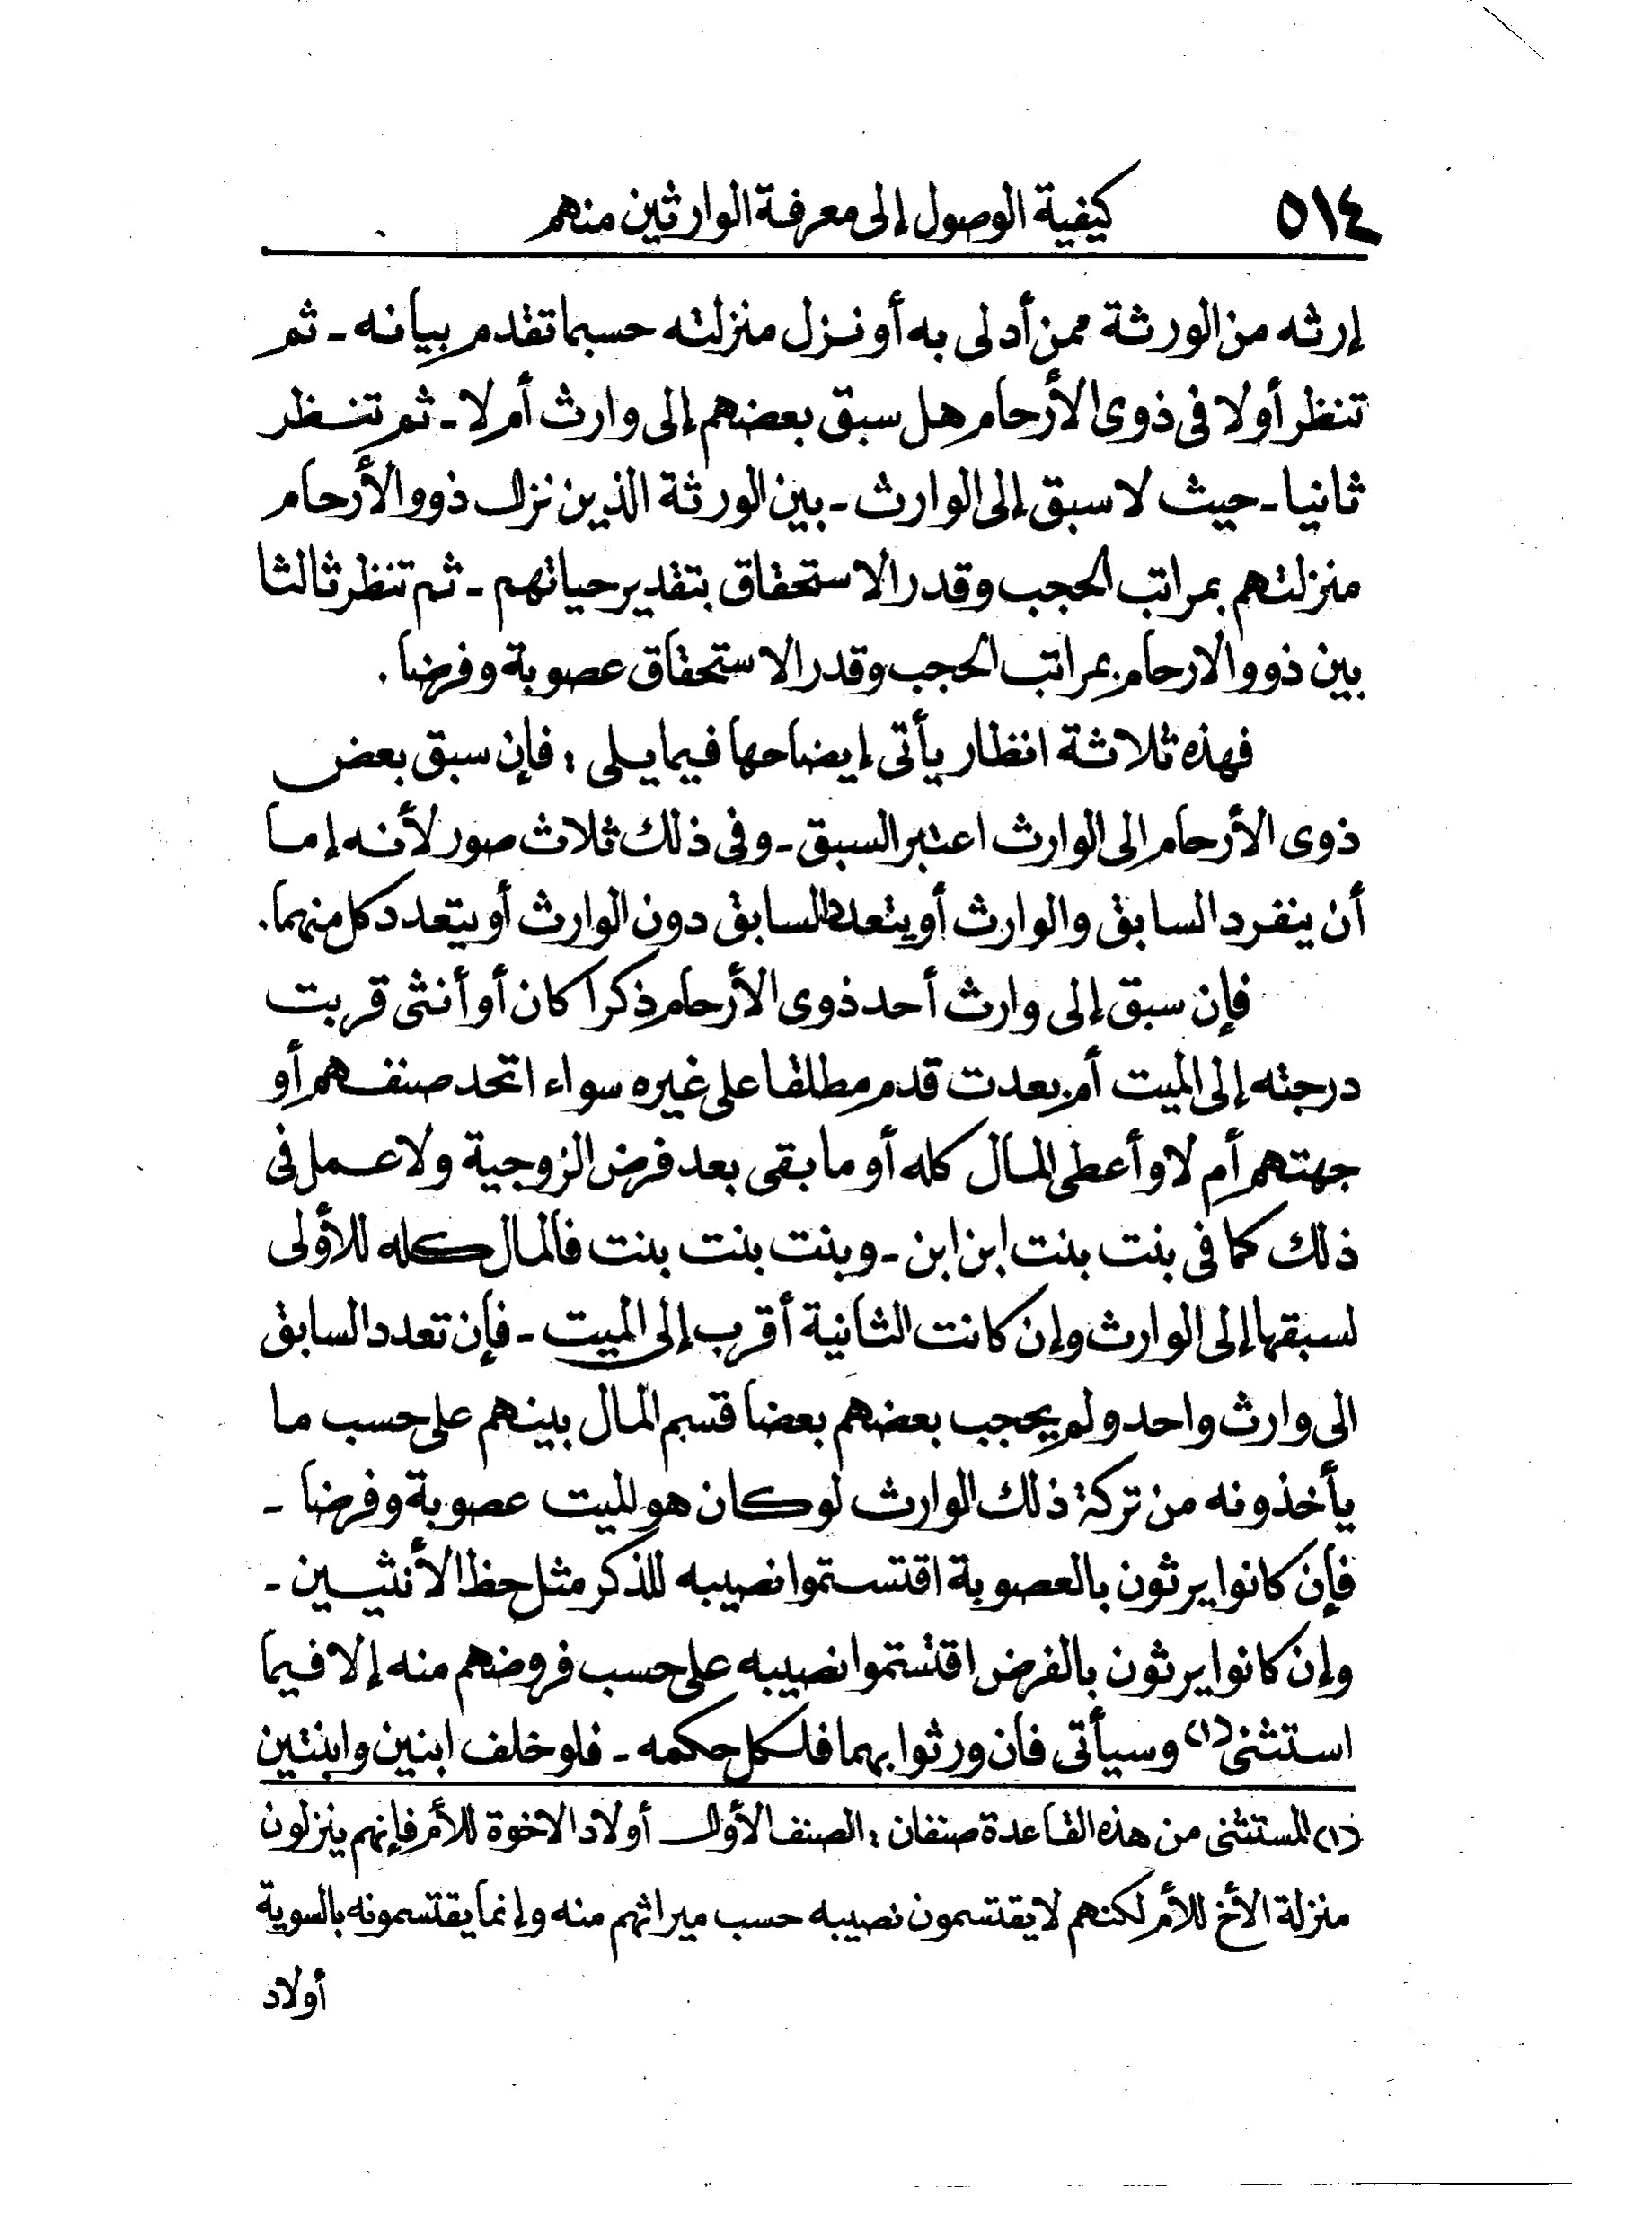 ٥١٤ كيفية الوصول إلى معرفة الوارثين منهم
إرثه من الورثة ممن أدلى به أو نزل منزلته حسبما تقدم بيانه ـ ثم
تنظر أولا فى ذوى الأرحام هل سبق بعضهم إلى وارث أم لا ـ ثم تنظر
ثانيا ـ حيث لا سبق إلى الوارث ـ بين الورثة الذين نزل ذوو الأرحام
منزلتهم بمراتب الحجب وقدر الاستحقاق بتقدير حياتهم ـ ثم تنظر ثالثا
بين ذوو الارحام بمراتب الحجب وقدر الاستحقاق عصوبة وفرضا .
فهذه ثلاثة انظار يأتى إيضاحها فيما يلى : فإن سبق بعض
ذوى الأرحام إلى الوارث اعتبر السبق ـ وفى ذلك ثلاث صور لأنه إما
أن ينفرد السابق والوارث أو يتعدد السابق دون الوارث أو يتعدد كل منهما .
فإن سبق إلى وارث أحد ذوى الأرحام ذكرا كان أو أنثى قربت
درجته إلى الميت أم بعدت قدم مطلقا على غيره سواء اتحد صنفهم أو
جهتهم أم لا وأعطى المال كله أو ما بقى بعد فرض الزوجية ولا عمل فى
ذلك كما فى بنت بنت ابن ابن ـ وبنت بنت بنت فالمال كله للأولى
لسبقها إلى الوارث وإن كانت الثانية أقرب إلى الميت ـ فإن تعدد السابق
الى وارث واحد ولم يحجب بعضهم بعضا قسم المال بينهم على حسب ما
يأخذونه من تركة ذلك الوارث لو كان هو الميت عصوبة وفرضا ـ
فإن كانوا يرثون بالعصوبة اقتستموا نصيبه للذكر مثل حظ الأنثيين ـ
وإن كانوا يرثون بالفرض اقتستموا نصيبه على حسب فروضهم منه إلا فيما
استثنى (١) وسيأتى فأن ورثوا بهما فلكل حكمه ـ فلو خلف ابنين وابنتين
(١) المستثنى من هذه القاعدة صنفان : الصنف الأول أولاد الاخوة للأم فإنهم ينزلون
منزلة الأخ للأم لكنهم لا يقتسمون نصيبه حسب ميراثهم منه وإنما يقتسمونه بالسوية
أولاد